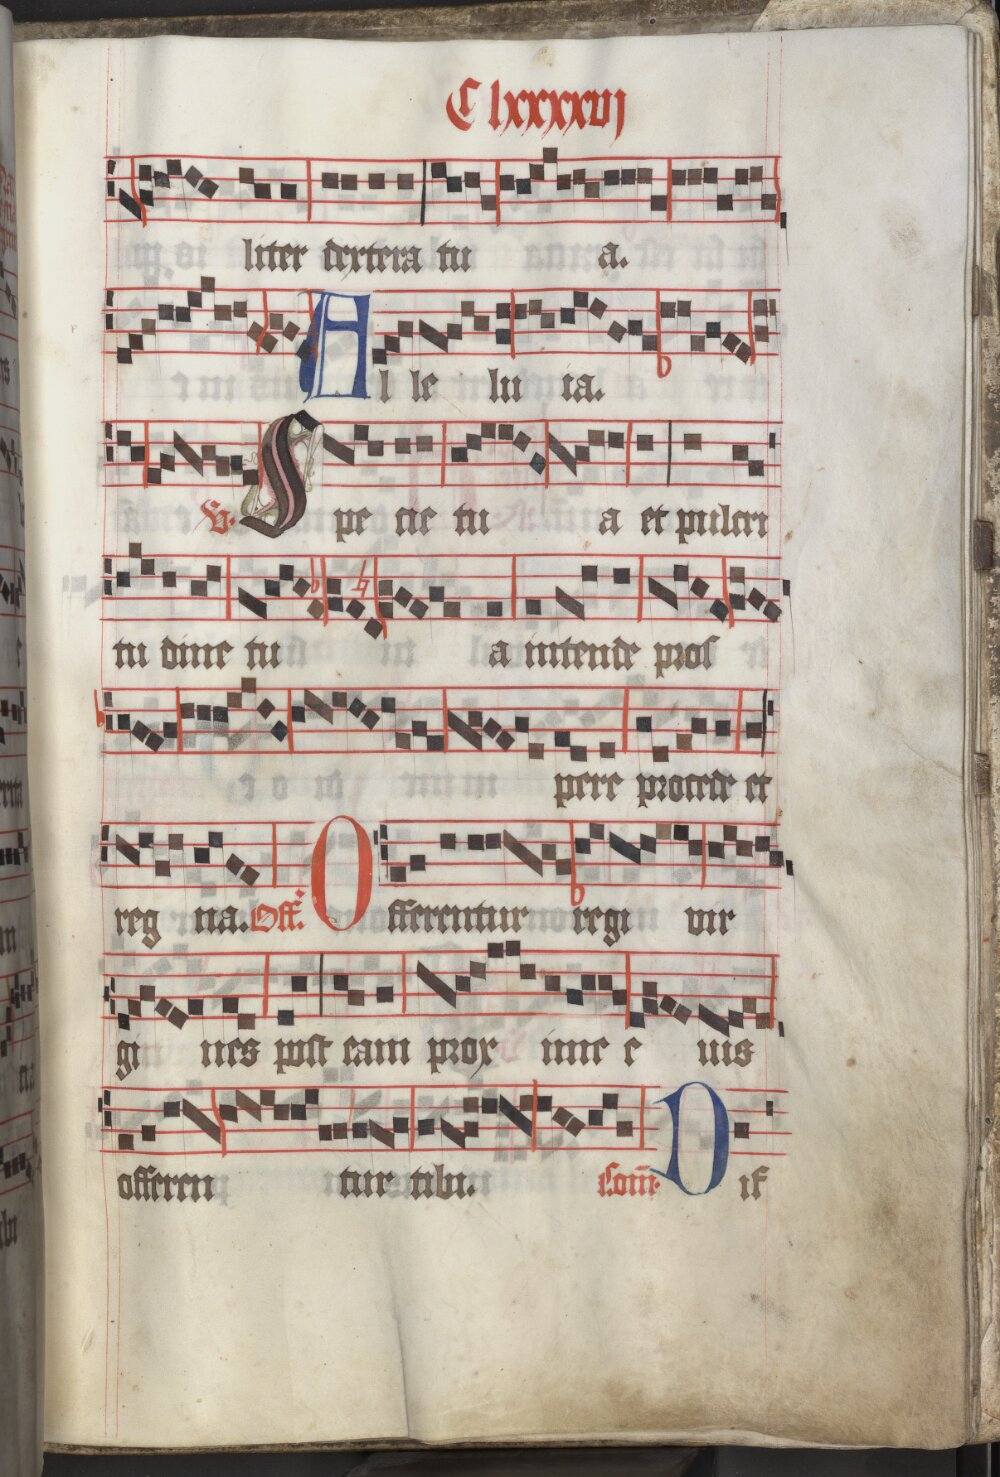 C lxxxxvj
liter dextera tu a.
Al le lu ia.
V. Spe cie tu a et pulcri
tu dine tu a intende pros
pere procede et
reg na. Off. Offerentur regi vir
gi nes post eam prox ime e uis
offeren tur tibi. Com̅. Dif